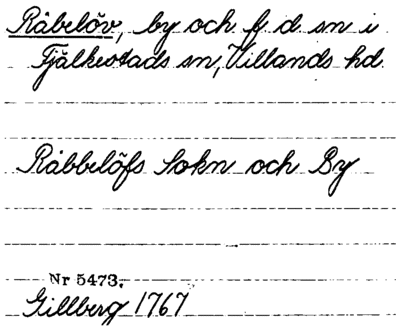 Råbelöv, by och f d sn i
Fjälkestads sn, Villands hd
Råbbelöfs Sokn och By
Nr 5473.
Gillberg 1767